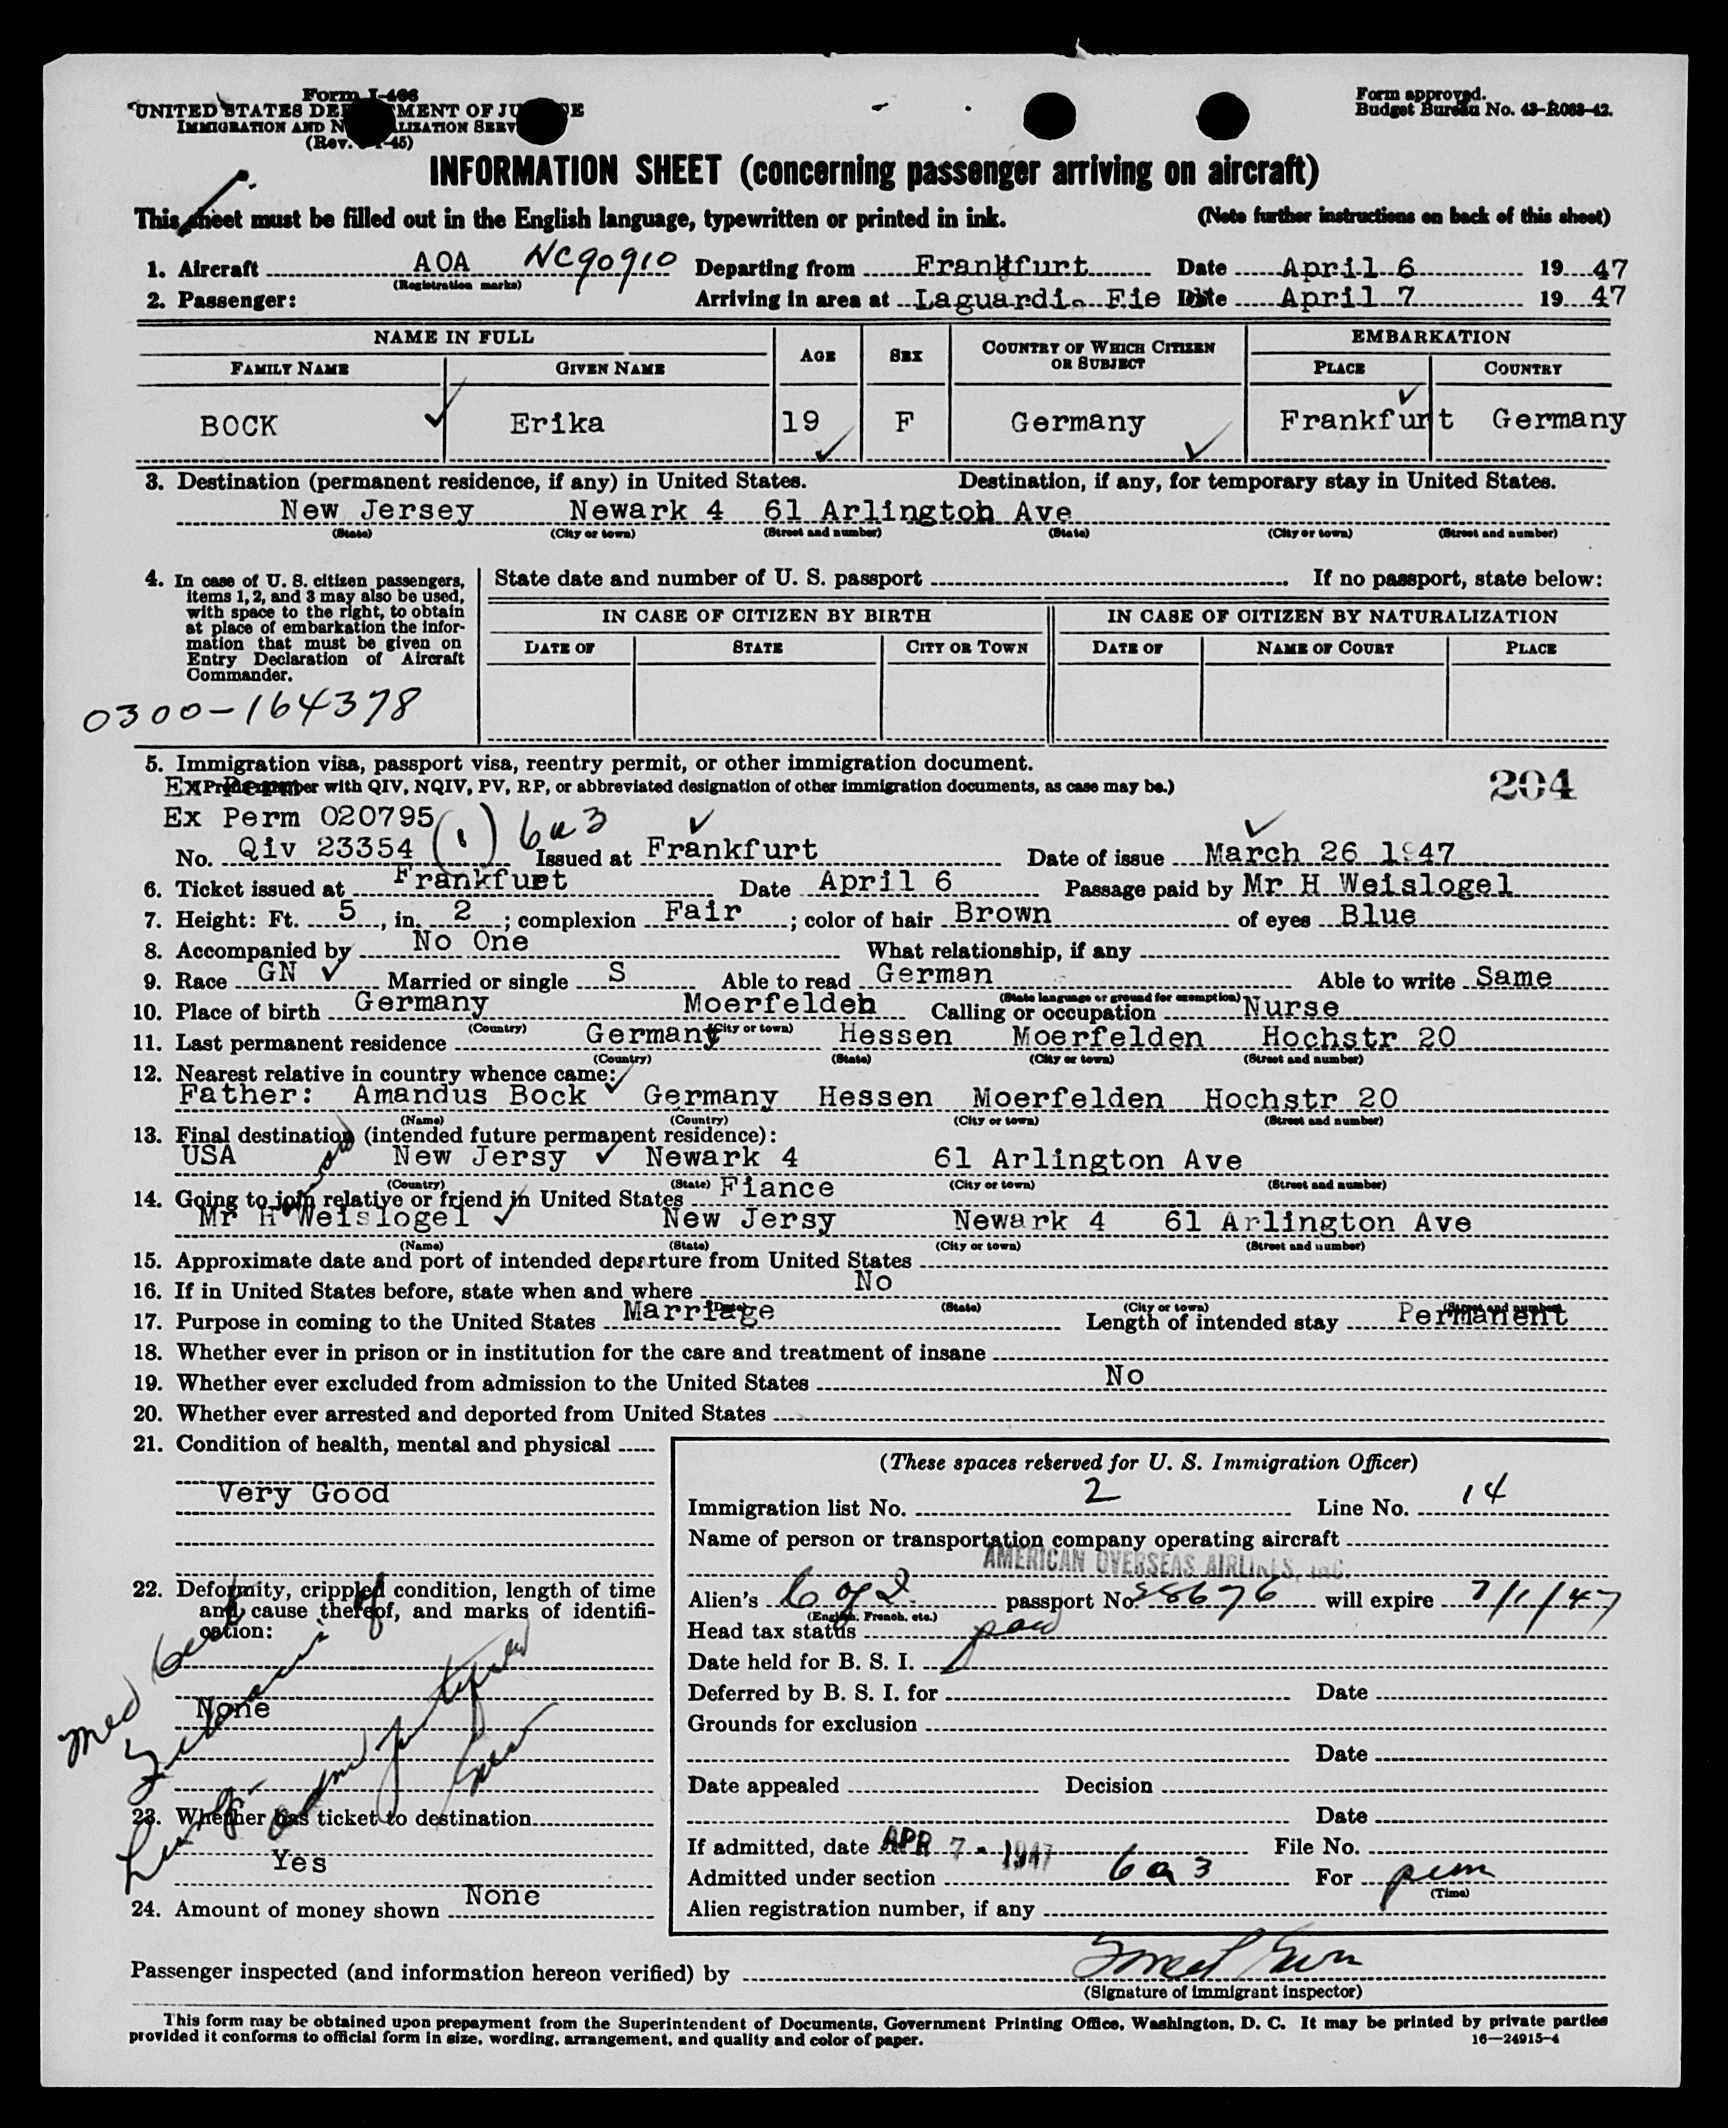 Form I-466
UNITED STATES DEPARTMENT OF JUSTICE
IMMIGRATION AND NATURALIZATION SERVICE
(Rev. -45)
Form approved.
Budget Bureau No. 43-R083-42.
INFORMATION SHEET (concerning passenger arriving on aircraft)
This sheet must be filled out in the English language, typewritten or printed in ink. (Note further instructions on back of this sheet)
1. Aircraft AOA NC90910 Departing from Frankfurt Date April 6 1947
(Registration marks)
2. Passenger: Arriving in area at Laguardia Fie ld Date April 7 1947
NAME IN FULL AGE SEX COUNTRY OF WHICH CITIZEN OR SUBJECT EMBARKATION
FAMILY NAME GIVEN NAME PLACE COUNTRY
BOCK Erika 19 F Germany Frankfurt Germany
3. Destination (permanent residence, if any) in United States. Destination, if any, for temporary stay in United States.
New Jersey Newark 4 61 Arlington Ave
(State) (City or town) (Street and number) (State) (City or town) (Street and number)
4. In case of U. S. citizen passengers, items 1, 2, and 3 may also be used, with space to the right, to obtain at place of embarkation the information that must be given on Entry Declaration of Aircraft Commander.
State date and number of U. S. passport If no passport, state below:
IN CASE OF CITIZEN BY BIRTH IN CASE OF CITIZEN BY NATURALIZATION
DATE OF STATE CITY OR TOWN DATE OF NAME OF COURT PLACE
0300-164378
5. Immigration visa, passport visa, reentry permit, or other immigration document.
Ex Perm (Prefix number with QIV, NQIV, PV, RP, or abbreviated designation of other immigration documents, as case may be.) 204
Ex Perm 020795
No. Qiv 23354 (1) 6a3 Issued at Frankfurt Date of issue March 26 1947
6. Ticket issued at Frankfurt Date April 6 Passage paid by Mr H Weislogel
7. Height: Ft. 5, in. 2; complexion Fair; color of hair Brown of eyes Blue
8. Accompanied by No One What relationship, if any
9. Race GN Married or single S Able to read German Able to write Same
(State language or ground for exemption)
10. Place of birth Germany Moerfelden Calling or occupation Nurse
(Country) (City or town)
11. Last permanent residence Germany Hessen Moerfelden Hochstr 20
(Country) (State) (City or town) (Street and number)
12. Nearest relative in country whence came:
Father: Amandus Bock Germany Hessen Moerfelden Hochstr 20
(Name) (Country) (City or town) (Street and number)
13. Final destination (intended future permanent residence):
USA New Jersy Newark 4 61 Arlington Ave
(Country) (State) (City or town) (Street and number)
14. Going to join relative or friend in United States Fiance
Mr H Weislogel New Jersy Newark 4 61 Arlington Ave
(Name) (State) (City or town) (Street and number)
15. Approximate date and port of intended departure from United States
16. If in United States before, state when and where No
(Date) (State) (City or town) (Street and number)
17. Purpose in coming to the United States Marriage Length of intended stay Permanent
18. Whether ever in prison or in institution for the care and treatment of insane
19. Whether ever excluded from admission to the United States No
20. Whether ever arrested and deported from United States
21. Condition of health, mental and physical
Very Good
22. Deformity, crippled condition, length of time and cause thereof, and marks of identification:
None
Med cert
23. Whether has ticket to destination
Yes
24. Amount of money shown None
(These spaces reserved for U. S. Immigration Officer)
Immigration list No. 2 Line No. 14
Name of person or transportation company operating aircraft
AMERICAN OVERSEAS AIRLINES, INC.
Alien's passport No. 38676 will expire 7/1/47
(English, French, etc.)
Head tax status paid
Date held for B. S. I.
Deferred by B. S. I. for Date
Grounds for exclusion
Date
Date appealed Decision
Date
If admitted, date APR 7 - 1947 File No.
Admitted under section 6a3 For perm
(Time)
Alien registration number, if any
Passenger inspected (and information hereon verified) by
(Signature of immigrant inspector)
This form may be obtained upon prepayment from the Superintendent of Documents, Government Printing Office, Washington, D. C. It may be printed by private parties
provided it conforms to official form in size, wording, arrangement, and quality and color of paper. 16—24915-4